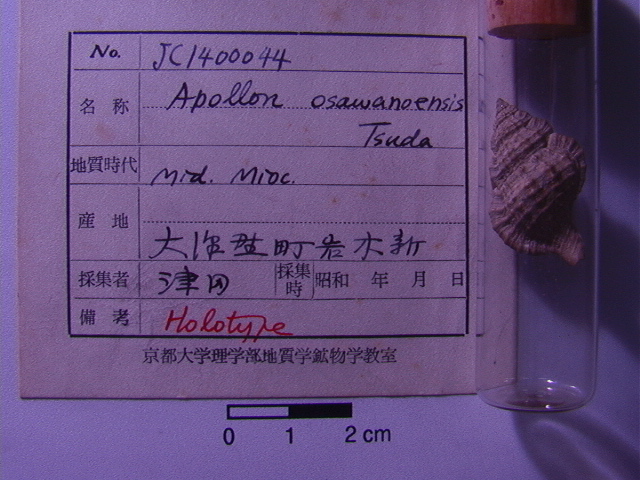 No. JC1400044
名称 Apollon osawanoensis
Tsuda
地質時代 Mid. Mioc.
産地
大沢野町岩木新
採集者 津田 採集時 昭和 年 月 日
備考 Holotype
京都大学理学部地質学鉱物学教室
0 1 2 cm